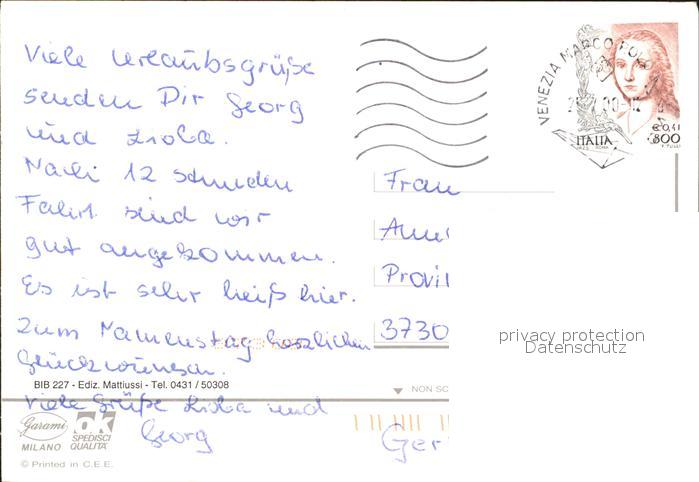 Viele Urlaubsgrüße
senden Dir Georg
und Ziola.
Nach 12 stunden
Fahrt sind wir
gut angekommen.
Es ist sehr heiß hier.
Zum Namenstag herzlichen
Glückwünsch.
Viele Grüße Ziola und
Georg
VENEZIA MARCO POLO
€0,41
800
ITALIA
Frau
Provi
3730
Ger
privacy protection
Datenschutz
BIB 227 - Ediz. Mattiussi - Tel. 0431 / 50308
NON SC
Garami
MILANO
ok
SPEDISCI
QUALITÀ
© Printed in C.E.E.